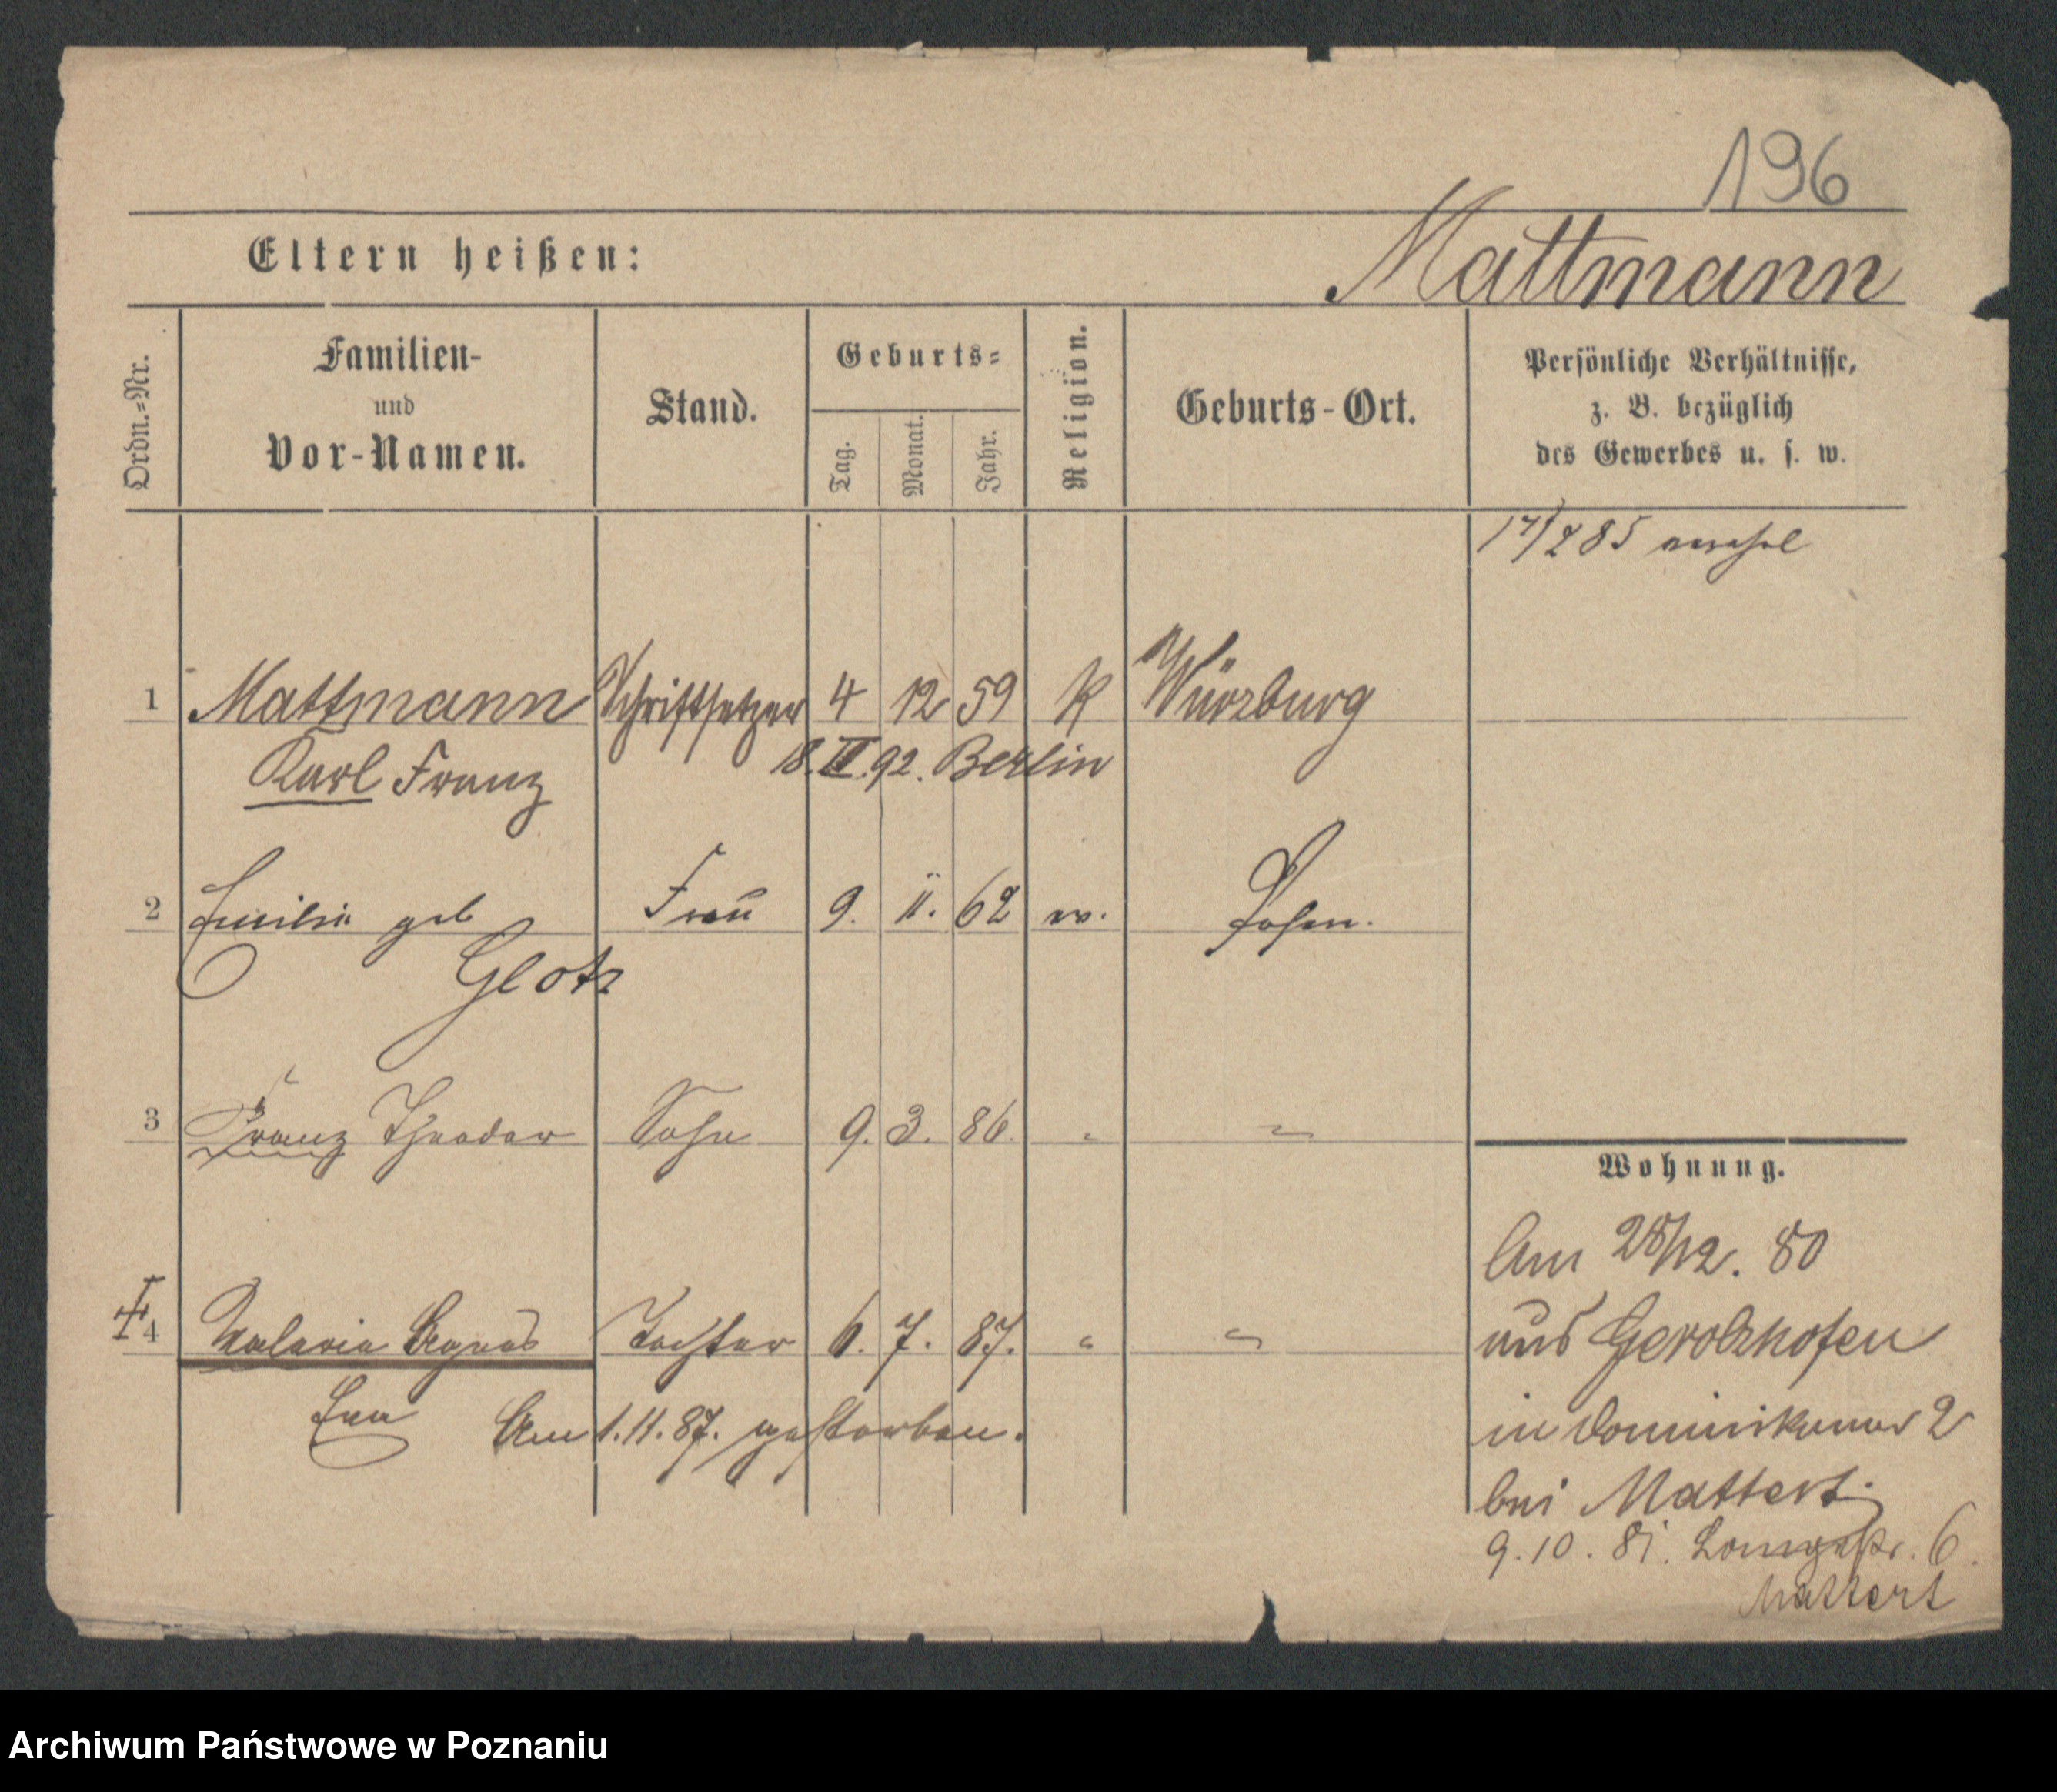 196
Eltern heißen:
Mattmann
Ordn.=Nr.
Familien-
und
Vor-Namen.
Stand.
Geburts=
Tag.
Monat.
Jahr.
Religion.
Geburts-Ort.
Persönliche Verhältnisse,
z. B. bezüglich
des Gewerbes u. s. w.
17/2 85
1 Mattmann Schriftsetzer 4 12 59 K Würzburg
18. III. 92. Berlin
Karl Franz
2 Emilie geb Frau 9. 11. 62 ev. Posen.
Glotz
3 Franz Theodor Sohn 9. 3. 86. " "
4 Valeria Agnes Tochter 6. 7. 87. " "
Eva Am 1. 11. 87. gestorben.
Wohnung.
Am 28/12. 80
aus Gerolzhofen
in Dominikaner 2
bei Mattert.
9. 10. 81. 6.
Mattert
Archiwum Państwowe w Poznaniu